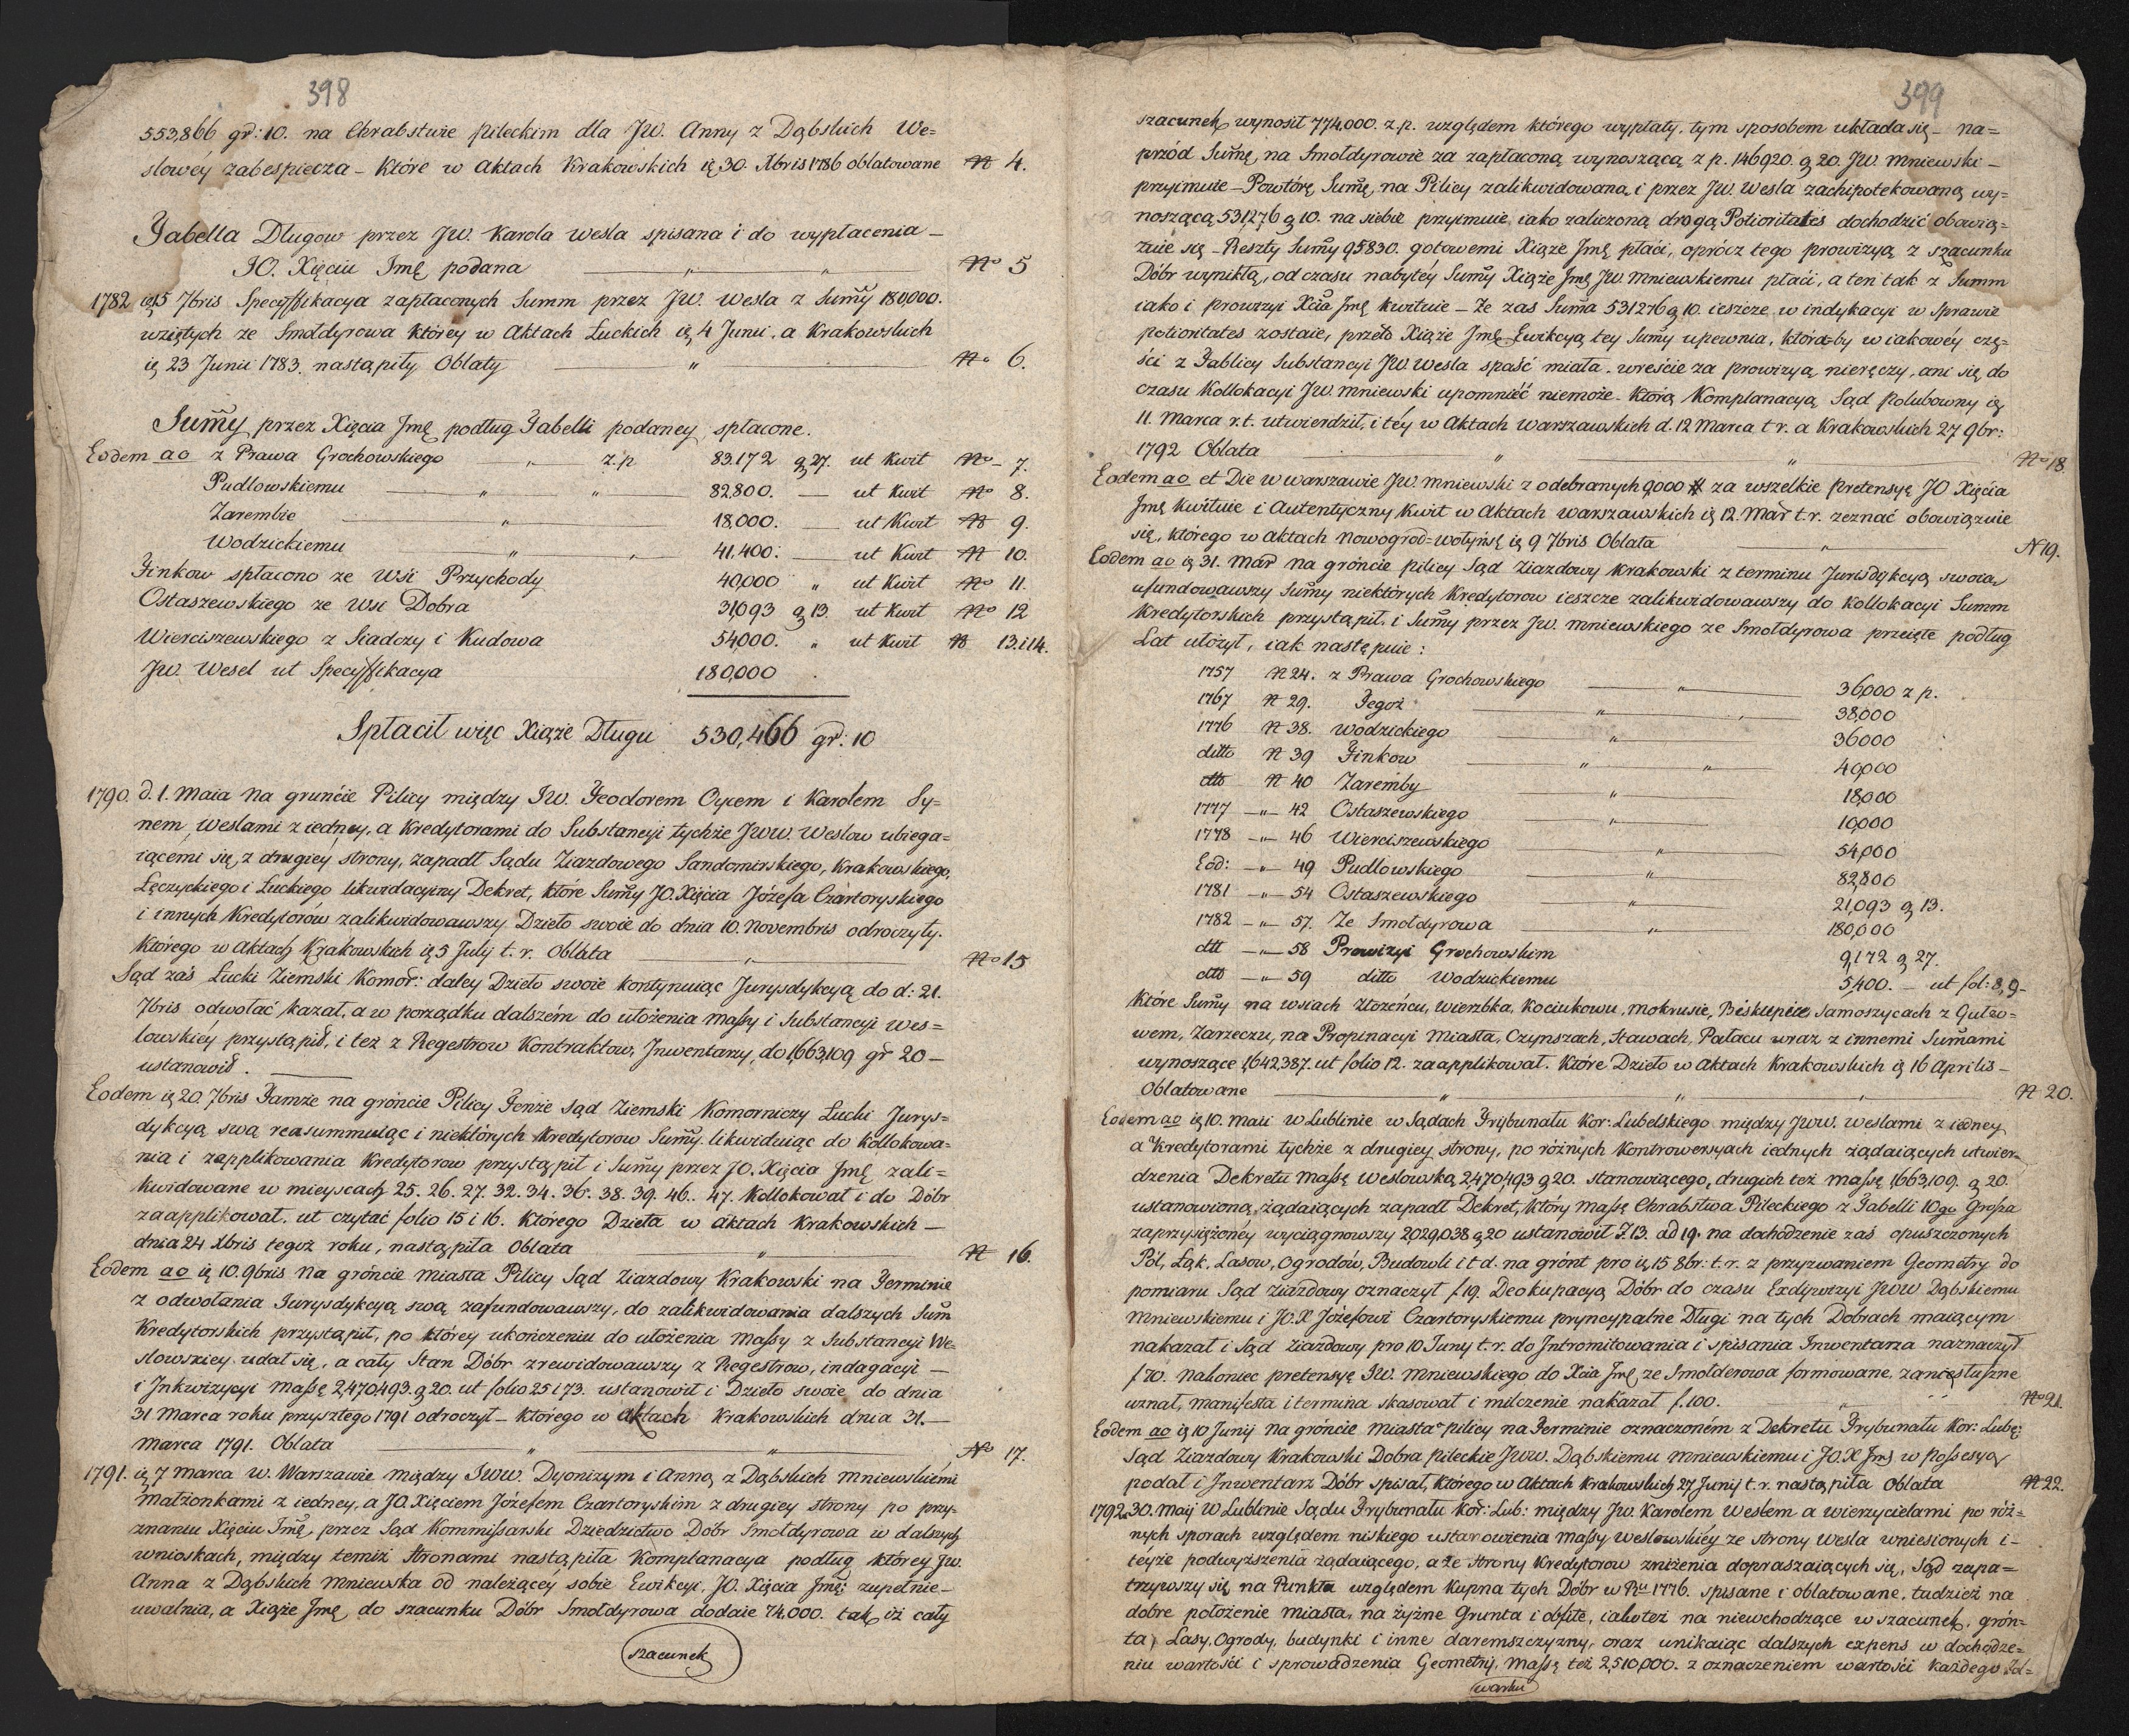 398
553,866 gr: 10. na Chrabstwie Pileckim dla JW. Anny z Dąbskich We=
slowéy zabespiecza – Które w Aktach Krakowskich 30. Xbris 1786 oblatowane N 4.
Tabella Długow przez JW. Karola Wesla spisana i do wypłacenia –
JO. Xięciu Jmę podana " " No 5
1782 5 7bris Specyffikacya zapłaconych Summ przez JW. Wesla z Sum̃y 180,000.
wziętych ze Smołdyrowa Którey w Aktach Łuckich 4 Junii, a Krakowskich
23 Junii 1783. nastąpiły Oblaty " No 6.
Sum̃y przez Xięcia Jmę podług Tabelli podaney spłacone.
Eodem ao z Prawa Grochowskiego " z.p 83.172 g 27. ut Kwit No – 7.
Pudlowskiemu " " 82,800. — ut Kwit No 8.
Zarembie " 18,000. — ut Kwit N 9.
Wodzickiemu " " 41,400. — ut Kwit N 10.
Finkow spłacono ze Wsi Przychody 40,000 " ut Kwit No 11.
Ostaszewskiego ze Wsi Dobra 31,093 g 13. ut Kwit No 12
Wierciszewskiego z Siadczy i Kudowa 54,000. " ut Kwit N 13. i 14.
JW. Wesel ut Specyffikacya 180,000
Spłacił więc Xiąże Długu 530,466 gr: 10
1790. d. 1. Maia na gruńcie Pilicy między JW. Teodorem Oycem i Karolem Sy=
nem Weslami z iedney, a Kredytorami do Substancyi tychże JWW. Weslow ubiega=
iącemi się, z drugiey strony, zapadł Sądu Ziazdowego Sandomirskiego, Krakowskiego,
Łęczyckiego i Łuckiego likwidacyiny Dekret, które Sum̃y JO. Xięcia Józefa Czartoryskiego
i innych Kredytorów zalikwidowawszy Dzieło swoie do dnia 10. Novembris odroczyły.
Którego w Aktach Krakowskich 5 Julij t. r. Oblata " No 15
Sąd zaś Łucki Ziemski Komor: daley Dzieło swoie kontynuiąc Jurysdykcyą do d: 21.
7bris odwołać kazał, a w porządku dalszém do ułożenia Massy i Substancyi Wes=
lowskiéy przystąpił, i też z Regestrow Kontraktow, Jnwentarzy, do 1,663,109 gr 20 –
ustanowił.
Eodem 20 7bris Tamże na gróncie Pilicy Tenże Sąd Ziemski Komorniczy Łucki Jurys=
dykcyą swą reasummuiąc i niektórych Kredytorow Sum̃y likwiduiąc do Kollokowa=
nia i zapplikowania Kredytorow przystąpił i Sum̃y przez JO. Xięcia Jmę zali=
kwidowane w mieyscach 25. 26. 27. 32. 34. 36. 38. 39. 46. 47. Kollokował i do Dóbr
zaapplikował. ut czytać folio 15 i 16. Którego Dzieła w aktach Krakowskich –
dnia 24 Xbris tegoż roku, nastąpiła Oblata " N 16.
Eodem ao 10. 9bris Na gróncie Miasta Pilicy Sąd Ziazdowy Krakowski na Terminie
z odwołania Jurysdykcyą swą zafundowawszy, do zalikwidowania dalszych Sum̃
Kredytorskich przystąpił, po którey ukończeniu do ułożenia Massy z Substancyi We=
slowskiey udał się, a cały Stan Dóbr zrewidowawszy z Regestrow, indagacyi –
i Jnkwizycyi Massę 2,470,493. g 20. ut folio 25 i 73. ustanowił i Dzieło swoie do dnia
31 Marca roku przyszłego 1791 odroczył – którego w Aktach Krakowskich dnia 31. –
Marca 1791. Oblata " " No 17.
1791. 7 Marca w. Warszawie między JWW. Dyonizym i Anną z Dąbskich Mniewskiémi
Małżonkami z iedney, a JO. Xięciem Józefem Czartoryskim z drugiey strony po przy=
znaniu Xięciu Jmę, przez Sąd Kommissarski Dziedzictwo Dóbr Smołdyrowa w dalszych
wnioskach, między temiż Stronami nastąpiła Komplanacya podług którey JW.
Anna z Dąbskich Mniewska od należącéy sobie Ewikcyi, JO. Xięcia Jmę: zupełnie –
uwalnia, a Xiąże Jmę do szacunku Dóbr Smołdyrowa dodaie 74,000. tak iż cały
szacunek
399
szacunek wynosił 774,000. z.p. względem którego wypłaty, tym sposobem układa się – na=
przód Sum̃ę, na Smołdyrowie za zapłaconą wynoszącą z p. 146920. g 20. JW. Mniewski –
przyimuie – Powtórę, Sum̃ę, na Pilicy zalikwidowaną i przez JW. Wesla zachipotekowaną wy=
noszącą 531,276 g 10. na siebie przyimuie iako zaliczoną drogą Potioritates dochodzić obowią=
zuie się – Reszty Sum̃y 95830. gotowemi Xiąże Jmę płaci, oprócz tego prowizyą z szacunku
Dóbr wynikłą, od czasu nabytéy Sum̃y Xiąże Jmę JW. Mniewskiemu płaci, a ten tak z Summ
iako i prowizyi Xcia Jmę kwituie – Że zas Sum̃a 531276 g 10. ieszcze w indykacyi w Sprawie
potioritates zostaie, przeto Xiąże Jmę Ewikcyą tey Sum̃y upewnia, któraby w iakowéy czę=
ści z Tablicy Substancyi JW. Wesla spaść miała. wreście za prowizyą nieręczy, ani się do
czasu Kollokacyi JW. Mniewski upomnić niemoże – Którą Komplanacyą Sąd Polubowny
11. Marca r.t. utwierdził, i téy w Aktach Warszawskich d. 12 Marca t r. a Krakowskich 27 9br:
1792 Oblata " " No 18.
Eodem ao et Die w Warszawie JW. Mniewski z odebranych 9,000 # za wszelkie Pretensyę JO Xięcia
Jmę Kwituie i Autentyczny Kwit w Aktach Warszawskich 12. Mar t.r. zeznać obowiązuie
się, którego w Aktach Nowogrod=wołyńsę 9 7bris Oblata " N 19.
Eodem ao 31. Mar na gróncie Pilicy Sąd Ziazdowy Krakowski z terminu Jurisdykcyą swoią
ufundowawszy Sum̃y niektórych Kredytorow ieszcze zalikwidowawszy do Kollokacyi Summ
Kredytorskich przystąpił, i Sum̃y przez JW. Mniewskiego ze Smołdyrowa przeięte podług
Lat ułożył, iak następuie:
1757 N 24. z Prawa Grochowskiego " 36,000 z p.
1767 N 29. Tegoż " " 38,000
1776 N 38. Wodzickiego " 36000
ditto N 39 Finkow " " 40,000
dtto N 40 Zaremby " 18,000
1777 –"– 42 Ostaszewskiego " 10,000
1778 –"– 46 Wierciszewskiego " 54,000
Eod: –"– 49 Pudlowskiego " 82,800
1781 –"– 54 Ostaszewskiego " 21,093 g 13.
1782 –"– 57. Ze Smołdyrowa " 180,000
dtt –"– 58 Prowizyi Grochowskim 9,172 g 27.
dtto –"– 59 ditto Wodzickiemu 5,400. – ut fol: 8, 9–
Które Sum̃y na wsiach Złożeńcu, Wierzbka, Kociukowu, Mokrusie, Biskupice Samoszycach z Gulzo=
wem, Zarzeczu, na Propinacyi Miasta, Czynszach, Stawach, Pałacu wraz z innemi Sum̃ami
wynoszące 1,642,387. ut folio 12. zaapplikował. Które Dzieło w Aktach Krakowskich 16 Aprilis –
Oblatowane " " " N 20.
Eodem ao 10. Maii w Lublinie w Sądach Trybunału Kor: Lubelskiego między JWW. Weslami z iedney
a Kredytorami tychże z drugiey strony, po różnych Kontrowersyach iednych żądaiących utwier=
dzenia Dekretu Massę Weslowską 2,470,493 g 20. stanowiącego, drugich też massę 1,663,109. g 20.
ustanowioną żądaiących zapadł Dekret, który Massę Chrabstwa Pileckiego z Tabelli 10go Grosza
zaprzysiężonéy wyciągnowszy 2029,038 g 20 ustanowił f. 13. ad 19. na dochodzenie zaś opuszczonych
Pól, Łąk, Lasow, Ogrodów, Budowli i t d. na grónt pro 15 8br: t. r. z przyzwaniem Geometry do
pomiaru Sąd Ziazdowy oznaczył f 19. Deokupacyą Dóbr do czasu Exdywizyi JWW Dąbskiemu
Mniewskiemu i JO. X Józefowi Czartoryskiemu pryncypalne Długi na tych Dobrach maiącym
nakazał i Sąd Ziazdowy pro 10 Juny t. r. do Jntromitowania i spisania Jnwentarza naznaczył
f 20. Nakoniec pretensyę JW. Mniewskiego do Xcia Jmę ze Smołderowa formowane, za niesłuszne
uznał, manifesta i termina skasował i milczenie nakazał f. 100. No 21.
Eodem ao 10 Junij na gróncie Miasta Pilicy na Terminie oznaczoném z Dekretu Trybunału Kor: Lubę:
Sąd Ziazdowy Krakowski Dobra Pileckie JWW. Dąbskiemu Mniewskiemu i JO. X Jmę w Possesyą
podał i Jnwentarz Dóbr spisał, Którego w Aktach Krakowskich 27 Junij t. r. nastąpiła Oblata N 22.
1792. 30. Maij W Lublinie Sądu Trybunału Kor: Lub: między JW. Karolem Weslem a wierzycielami po róż=
nych sporach względem niskiego ustanowienia Massy Weslowskiéy ze strony Wesla wniesionych i –
téyże podwyższenia żądaiącego, a że strony Kredytorow zniżenia dopraszaiących się, Sąd zapa=
trzywszy się na Punkta względem Kupna tych Dóbr w Ru 1776. spisane i oblatowane, tudzież na
dobre położenie Miasta, na żyżne Grunta i obfite, iako też na niewchodzące w szacunek, grón=
ta, Lasy, Ogrody, budynki i inne daremszczyzny, oraz unikaiąc dalszych expens w dochodze=
niu wartości i sprowadzenia Geometry, Massę też 2,510,000. z oznaczeniem wartości każdego Fol=
warku